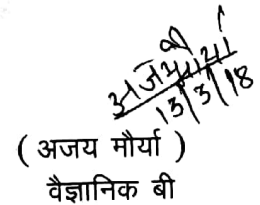 अजय मौर्या
13/3/18
( अजय मौर्या )
वैज्ञानिक बी